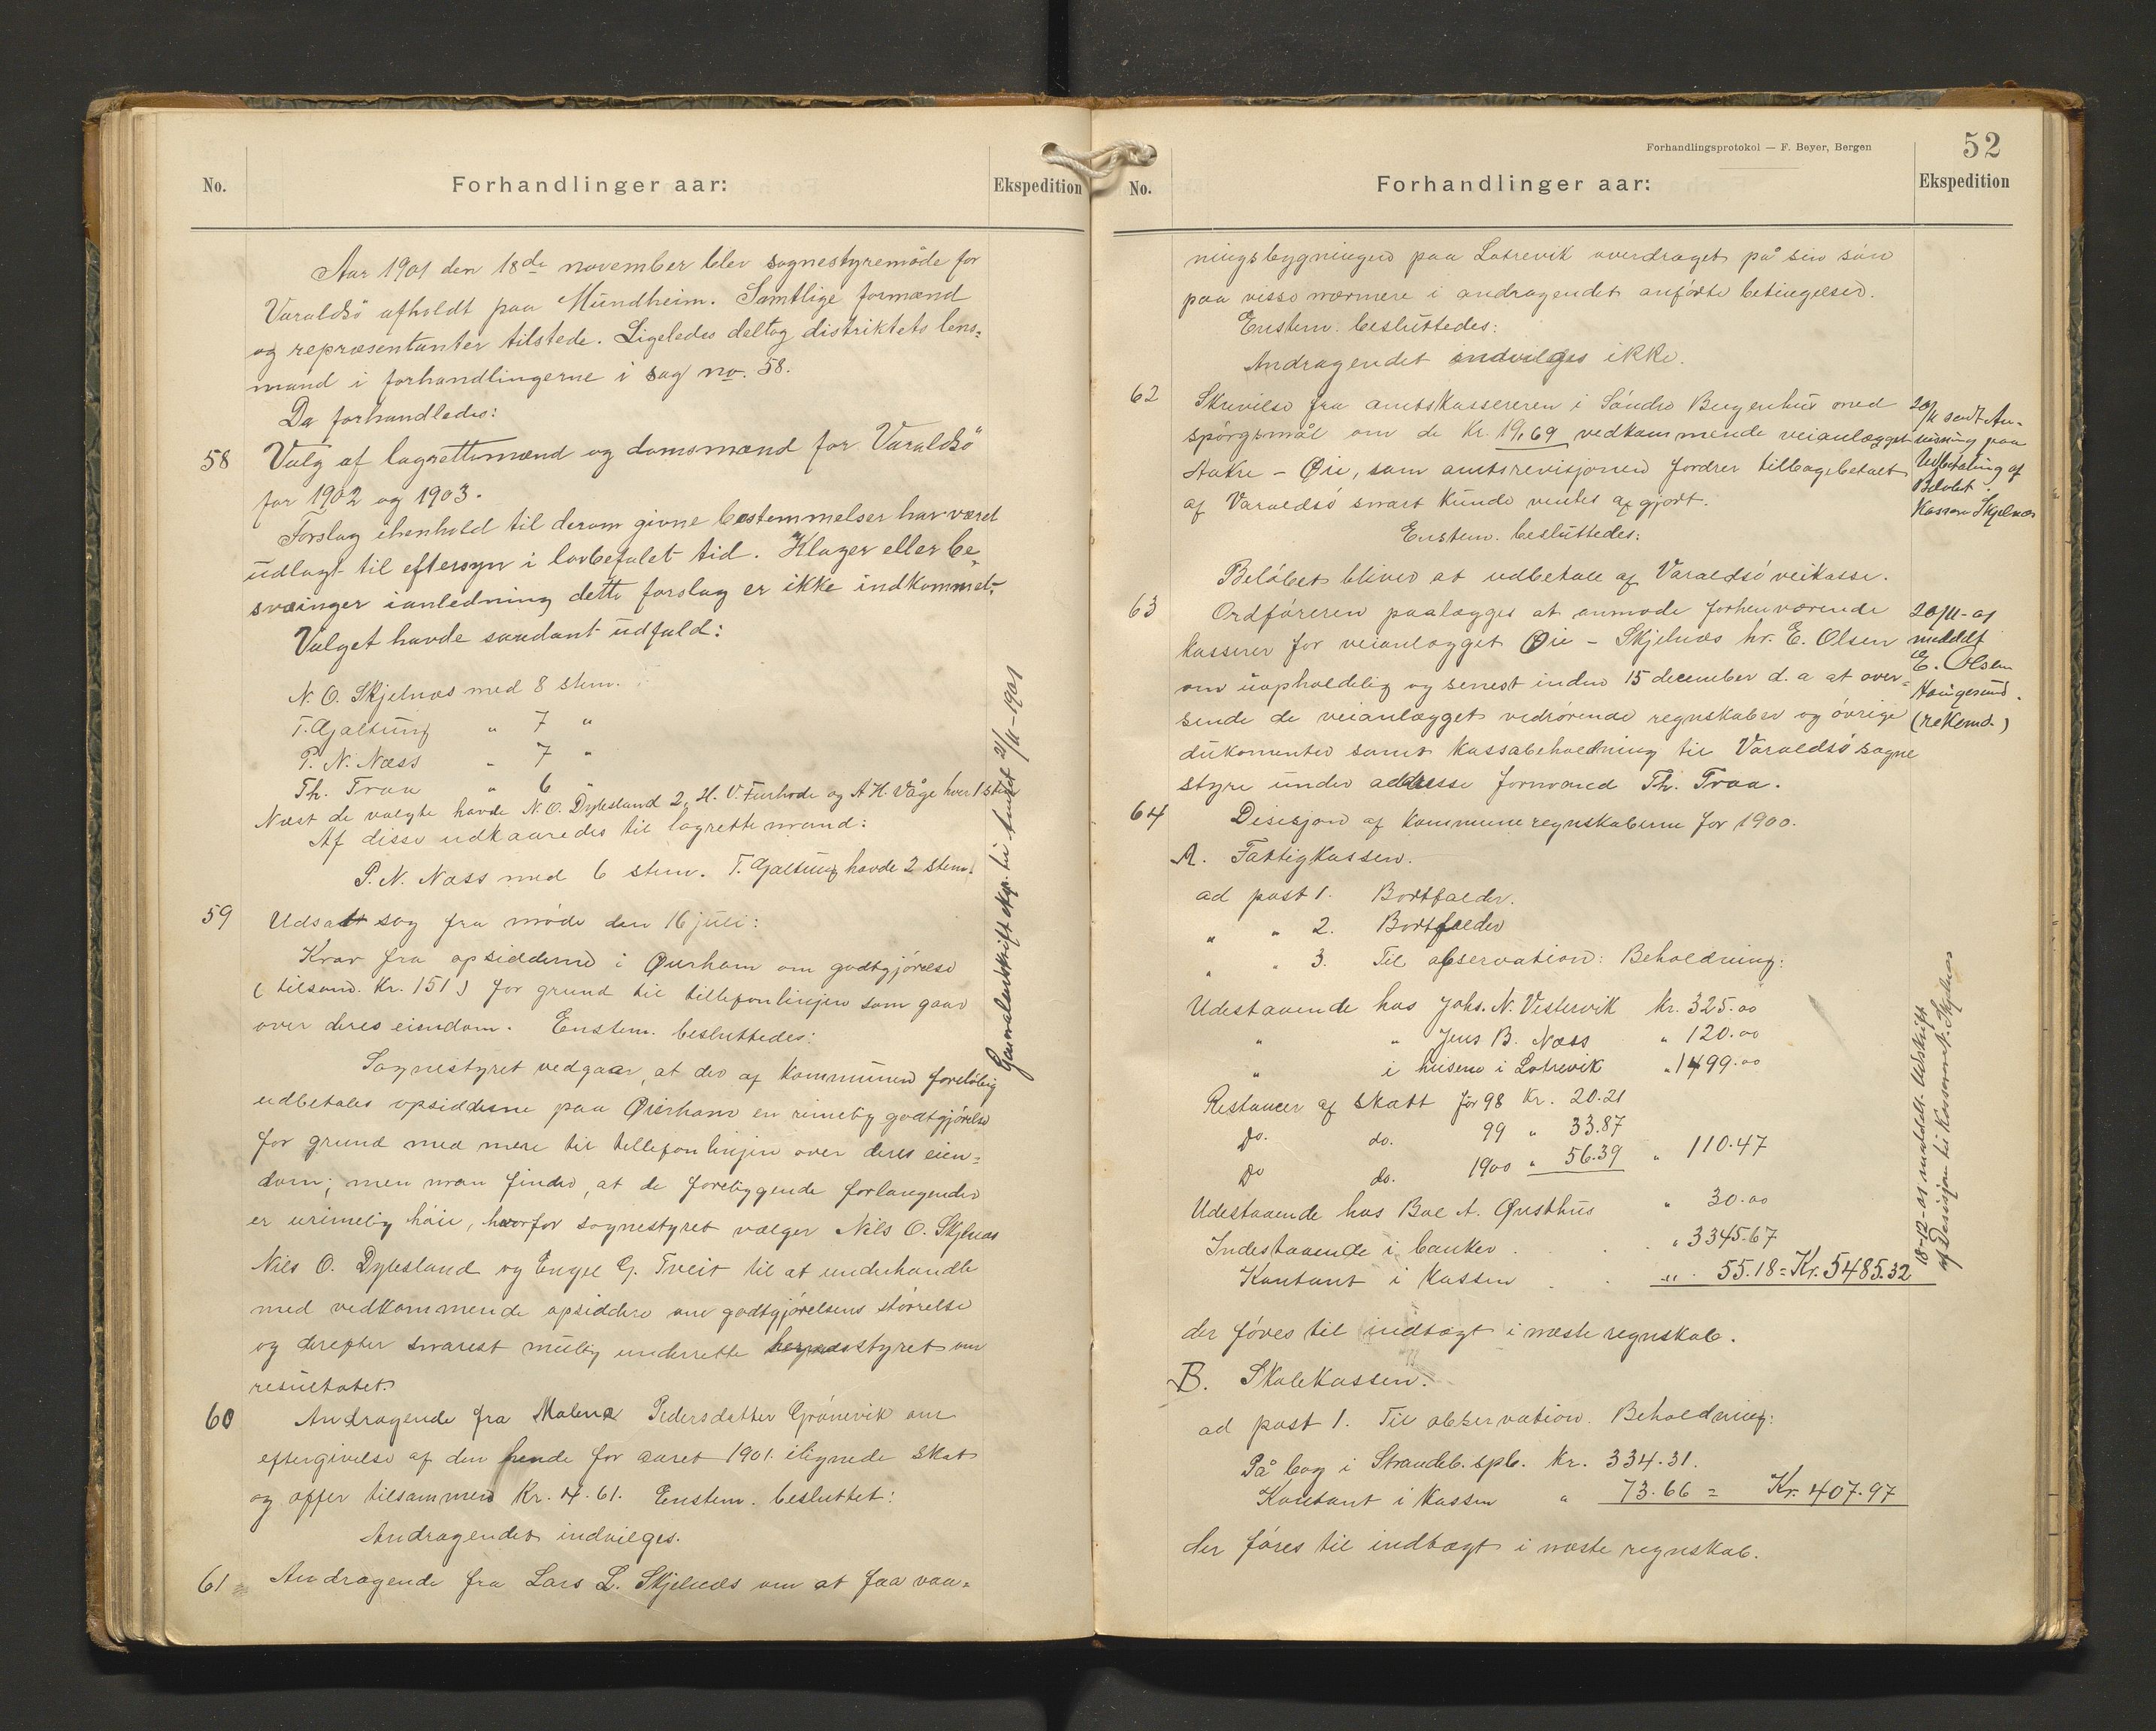 No.
Forhandlinger aar:
Ekspedition
Aar 1901 den 18de november blev sognestyremøde for
Varaldsö afholdt paa Mundheim. Samtlige formænd
og repræsentanter tilstede. Ligeledes deltog distriktets lens=
mand i forhandlingerne i sag no. 58.
Da forhandledes:
58 Valg af lagrettemænd og domsmænd for Varaldsö
for 1902 og 1903.
Forslag ihenhold til derom givne bestemmelser har været
udlagt til eftersyn i lovbefalet tid. Klager eller be=
sværinger i anledning dette forslag er ikke indkommet.
Valget havde saadant udfald:
N. O. Skjelnæs med 8 stem.
T. Gjaltung " 7 "
P. N. Næss " 7 "
Th. Traa " 6 "
Næst de valgte havde N. O. Dybsland 2, H. V. Furhovde og A H. Våge hver 1 stem
Af disse udkaaredes til lagrettemænd:
P. N. Næss med 6 stem. T. Gjaltung havde 2 stem.
Generaludskrift exp. til amtet 21/11-1901
59 Udsat sag fra møde den 16 juli:
Krav fra opsidderne i Øierhavn om godtgjörelse
( tilsam. Kr. 151 ) for grund til tillefonlinjen som gaar
over deres eiendom. Enstem. besluttedes:
Sognestyret vedgaar, at der af kommunen foreløbig
udbetales opsidderne paa Øierhavn en rimelig godtgjörelse
for grund med mere til tellefonlinjen over deres eien=
dom; men man finder, at de foreliggende forlangender
er urimelig höie, hvorfor sognestyret vælger Nils O. Skjelnæs
Nils O. Dybsland og Engel G. Tveit til at underhandle
med vedkommende opsiddere om godtgjörelsens störrelse
og derefter snarest mulig underrette herredsstyret om
resultatet.
60 Andragende fra Malena Pedersdatter Grönevik om
eftergivelse af den hende for aaret 1901 ilignede skat
og offer tilsammen Kr. 4.61. Enstem. besluttet:
Andragendet indvilges.
61 Andragende fra Lars L. Skjelnæs om at faa vaa=
Forhandlingsprotokol — F. Beyer, Bergen
52
No.
Forhandlinger aar:
Ekspedition
ningsbygningen paa Lotrevik overdraget på sin sön
paa visse nærmere i andragendet anførte betingelser.
Enstem. besluttedes:
Andragendet indvilges ikke.
62 Skrivelse fra amtskassereren i Söndre Bergenhus med
spörgsmål om de Kr. 19,69 vedkommende veianlægget
Aakre - Øie, som amtsrevisjonen fordrer tilbagebetalt
af Varaldsö snart kunde ventes afgjort.
Enstem. besluttedes:
Belöbet bliver at udbetale af Varaldsö veikasse.
20/11 sendt An-
visning paa
Udbetaling af
Beløbet
Kasserer Skjelnæs
63 Ordföreren paalægges at anmode forhenværende
kasserer for veianlægget Øie - Skjelnæs hr. E. Olsen
om uopholdelig og senest inden 15 december d. a at over=
sende de veianlægget vedrörende regnskaber og övrige
dukomenter samt kassabeholdning til Varaldsö sogne
styre under addresse formand Th. Traa.
20/11-01
meddelt
E. Olsen
Haugesund.
(rekomd.)
64 Desisjon af kommuneregnskaberne for 1900.
A. Fattigkassen.
ad post 1. Bortfalder.
" " 2. Bortfalder
" " 3. Til observation: Beholdning:
Udestaaende hos Johs. N. Vestervik kr. 325.00
" " Jens B. Næss " 120.00
" i husene i Lotrevik " 1499.00
Restancer af skatt for 98 kr. 20.21
Do. do. 99 " 33.87
Do do. 1900 " 56.39 " 110.47
Udestaaende hos Boe A. Øvsthus " 30.00
Indestaaende i banken . . . " 3345.67
Kontant i kassen . . " 55.18 = Kr. 5485.32
der föres til indtægt i næste regnskab.
B. Skolekassen.
ad post 1. Til observation. Beholdning:
På bog i Strandeb. spb. kr. 334.31.
Kontant i kassen " 73.66 = Kr. 407.97
der föres til indtægt i næste regnskab.
18-12-01 meddelt Udskrift
af Desisjon til Kasserer N. Skjelnæs